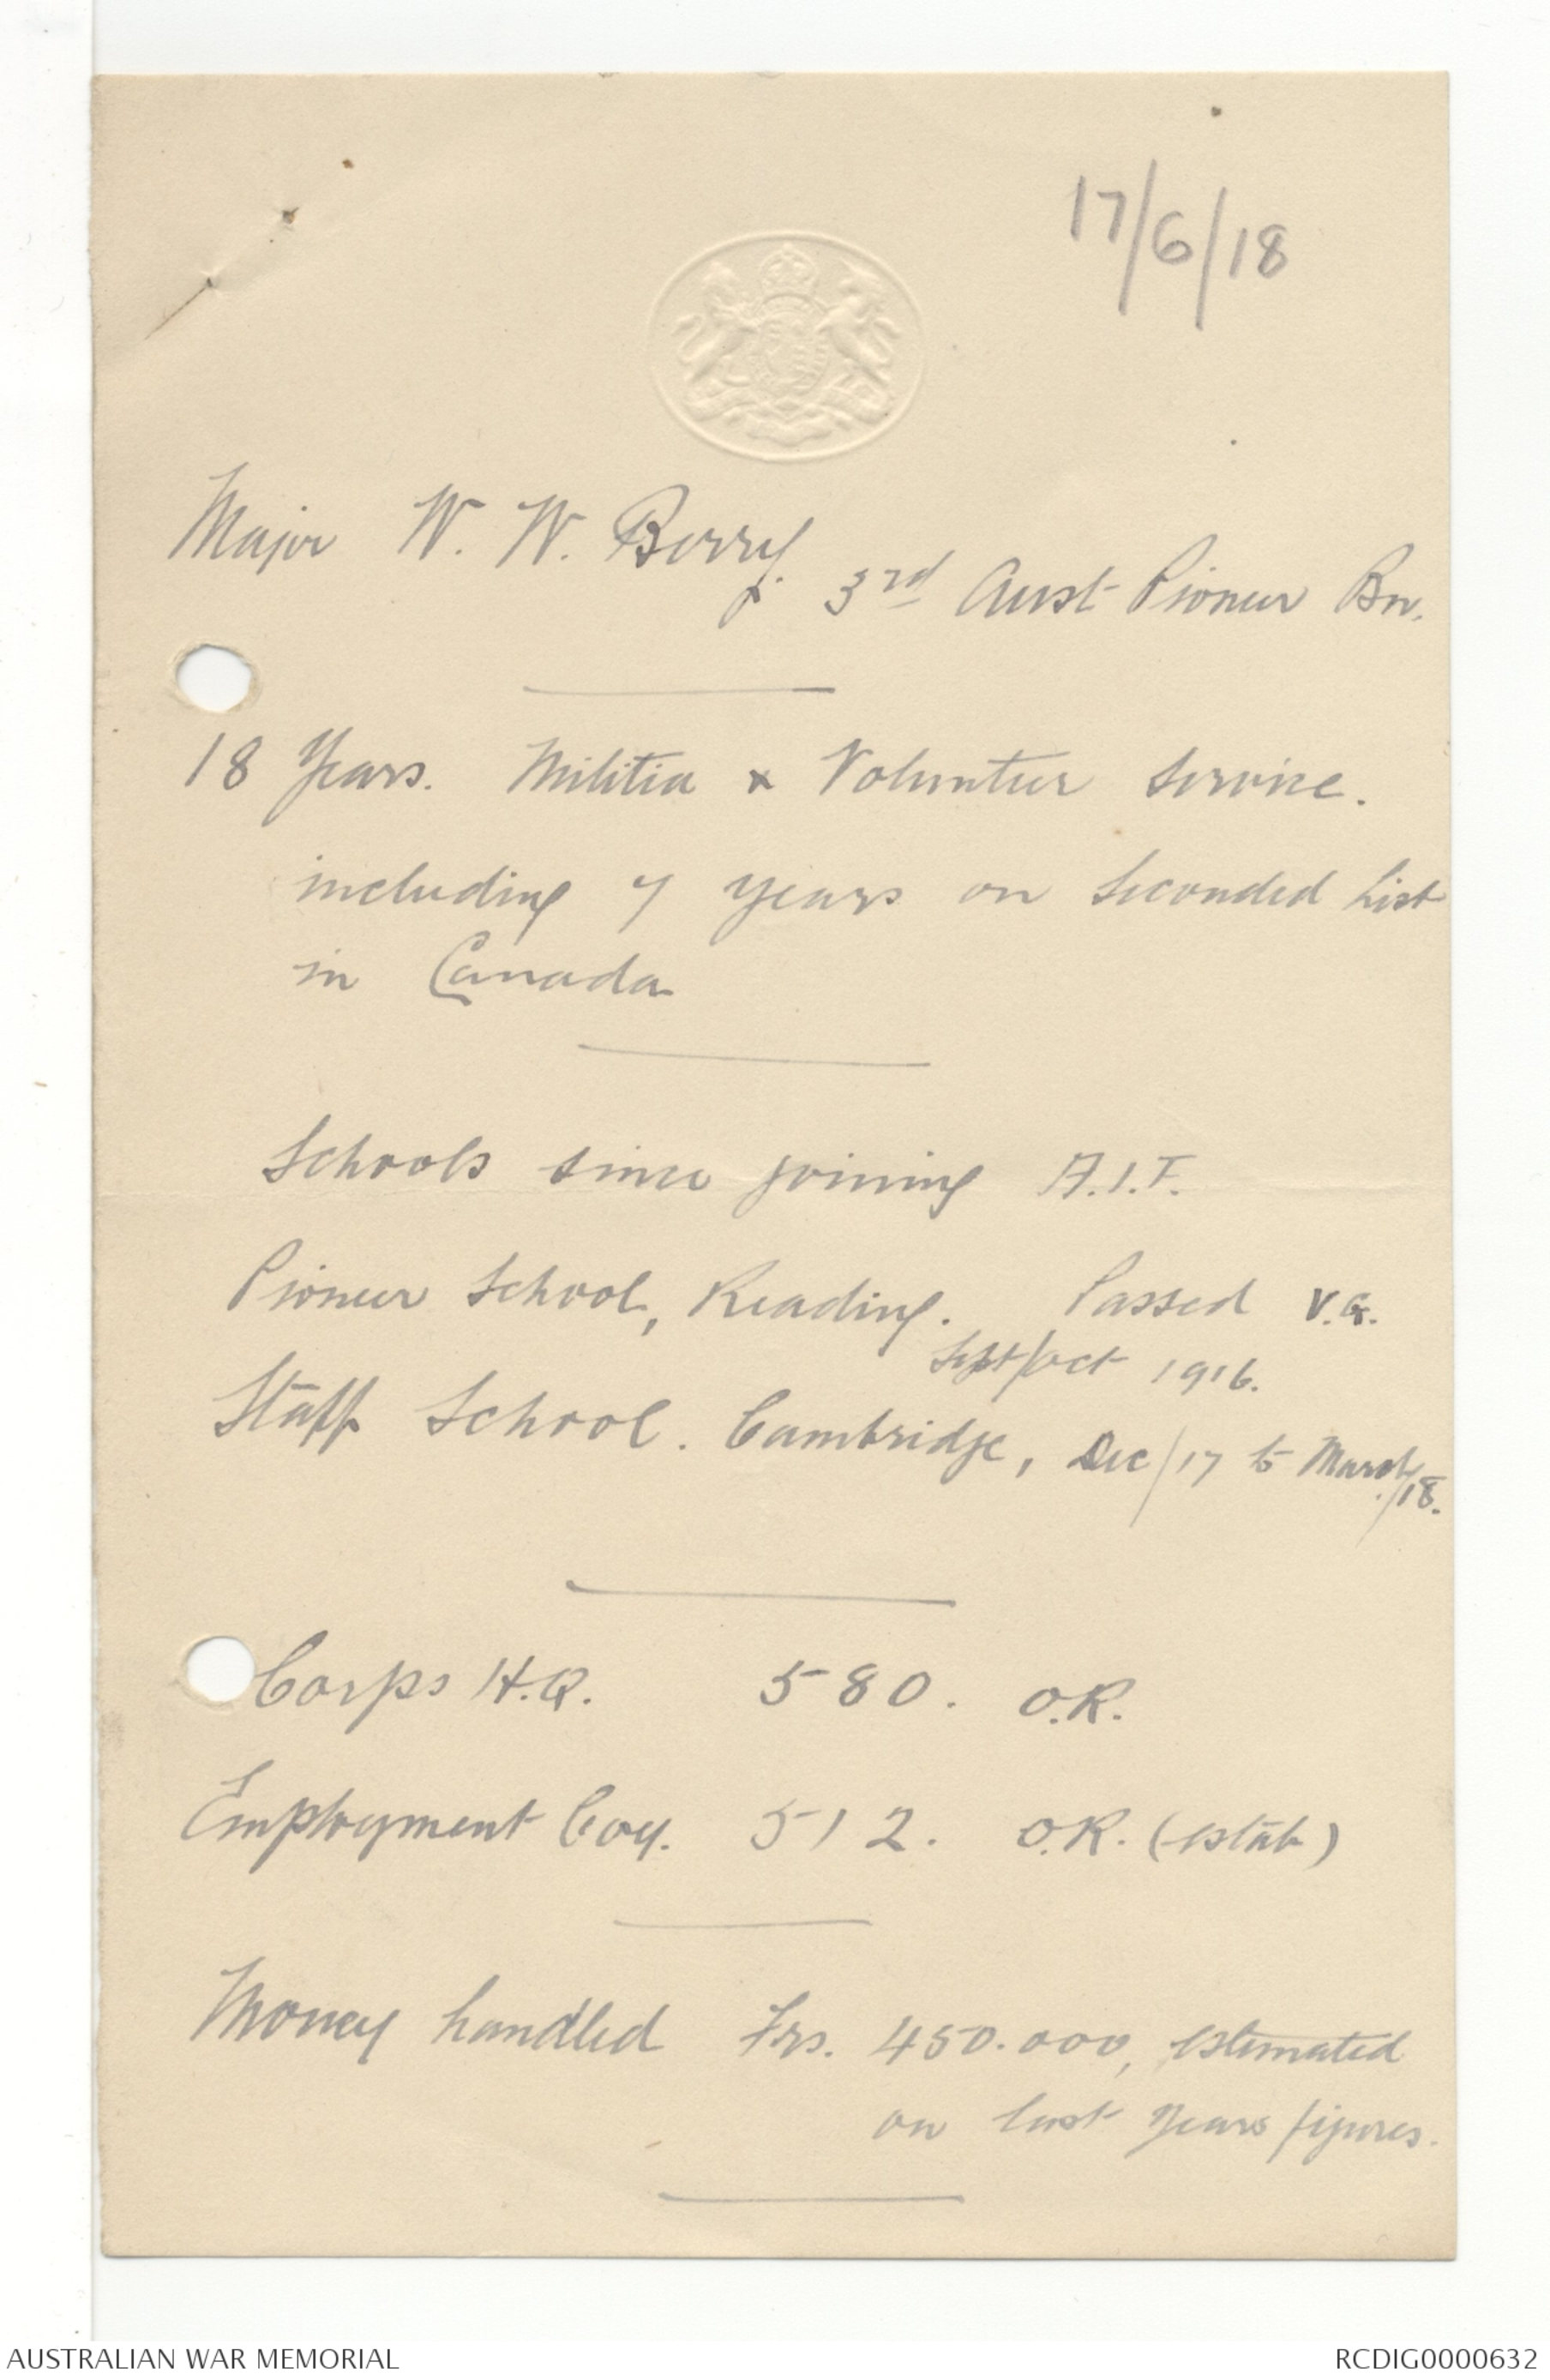 17/6/18
Major W. W. Berry.
3rd Aust Pioneer Bn.
18 Years. Militia & Volunteer Service.
including 7 years on Seconded List
in Canada
Schools since joining A.I.F.
Pioneer School, Reading. Passed V.G.
Sept/Oct 1916.
Staff School. Cambridge, Dec/17 to March/18.
Corps H.Q. 580. O.R.
Employment Coy. 512. O.R. (estab)
Money handled Frs. 450.000, estimated
on last years figures.
AUSTRALIAN WAR MEMORIAL
RCDIG0000632